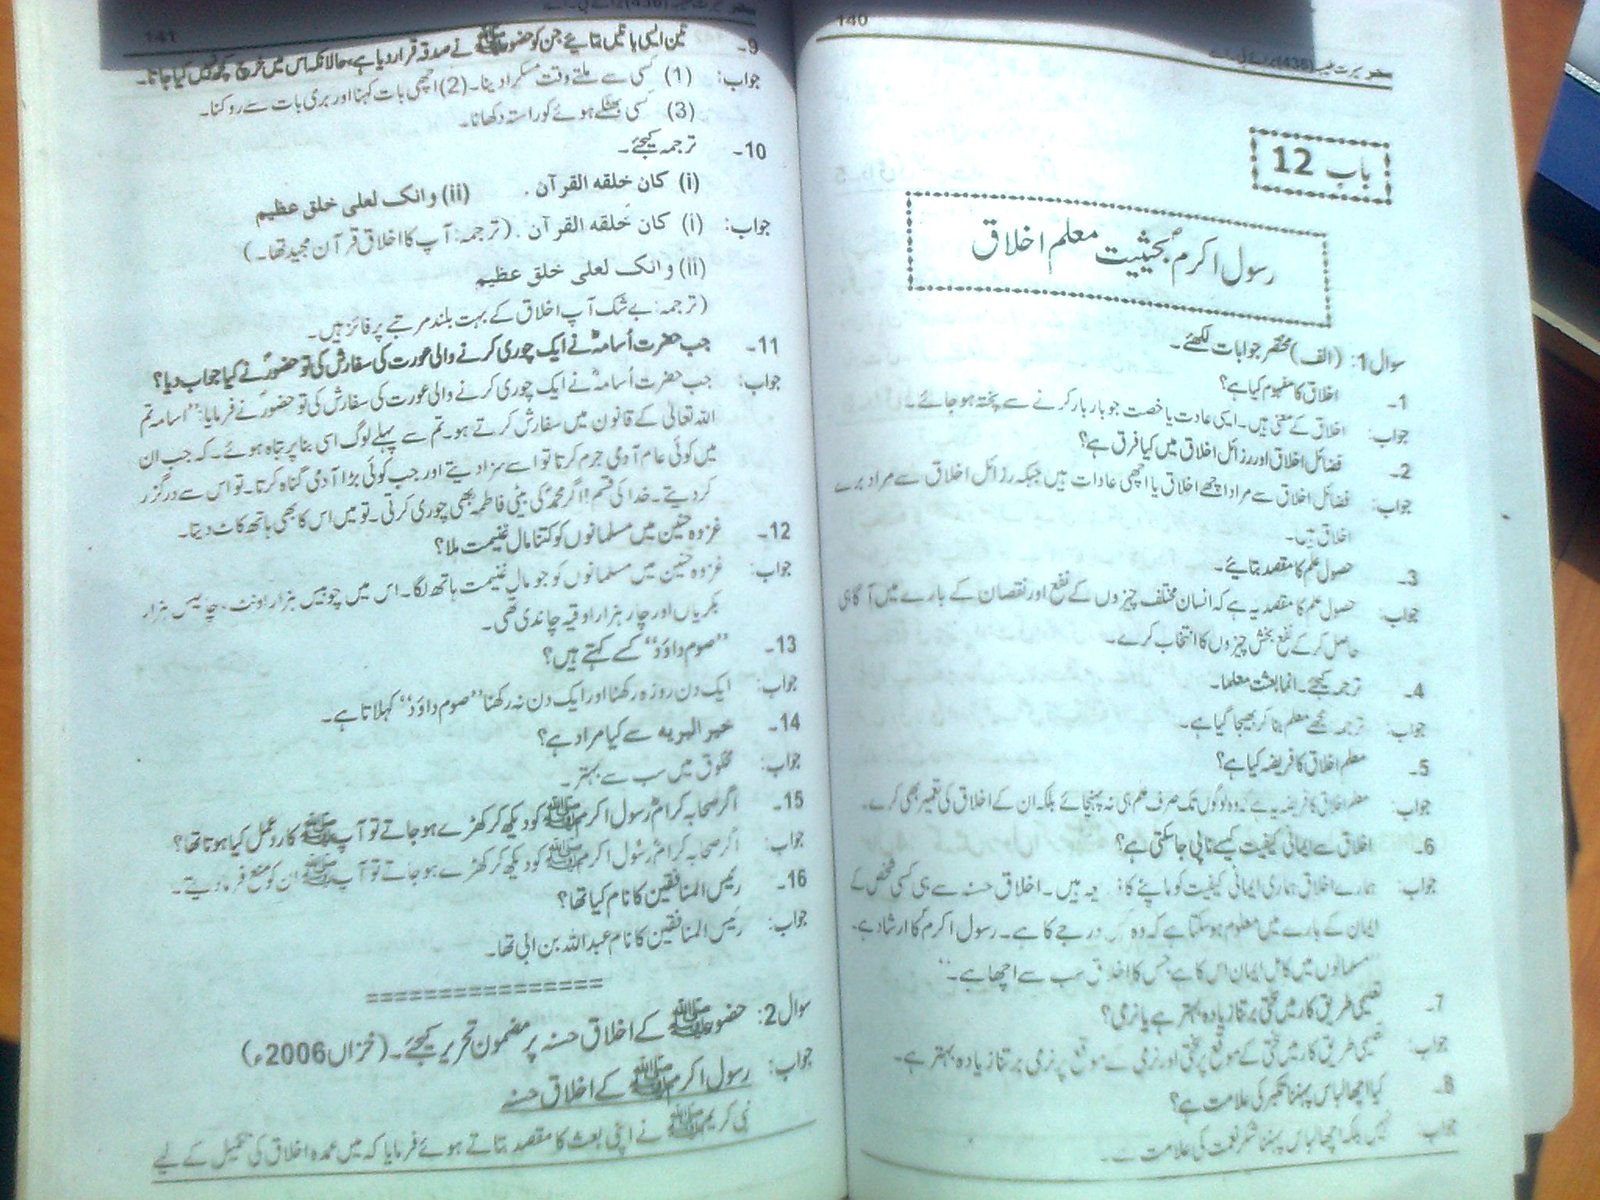 140
باب 12
رسول اکرمؐ بحیثیت معلم اخلاق
سوال 1: (الف) مختصر جوابات لکھئے۔
1۔ اخلاق کا مفہوم کیا ہے؟
جواب: اخلاق کے معنی ہیں۔ ایسی عادت یا خصت جو بار بار کرنے سے پختہ ہو جائے۔
2۔ فضائل اخلاق اور رزائل اخلاق میں کیا فرق ہے؟
جواب: فضائل اخلاق سے مراد اچھے اخلاق یا اچھی عادات ہیں جبکہ رزائل اخلاق سے مراد برے
اخلاق ہیں۔
3۔ حصول علم کا مقصد بتائیے۔
جواب: حصول علم کا مقصد یہ ہے کہ انسان مختلف چیزوں کے نفع اور نقصان کے بارے میں آگاہی
حاصل کر کے نفع بخش چیزوں کا انتخاب کرے۔
4۔ ترجمہ کیجئے۔ انما بعثت معلما۔
جواب: ترجمہ مجھے معلم بنا کر بھیجا گیا ہے۔
5۔ معلم اخلاق کا فریضہ کیا ہے؟
جواب: معلم اخلاق کا فریضہ یہ ہے کہ وہ لوگوں تک صرف علم ہی نہ پہنچائے بلکہ ان کے اخلاق کی تعمیر بھی کرے۔
6۔ اخلاق سے ایمانی کیفیت کیسے ناپی جا سکتی ہے؟
جواب: ہمارے اخلاق ہماری ایمانی کیفیت کو ماپنے کا ذریعہ ہیں۔ اخلاق حسنہ سے ہی کسی شخص کے
ایمان کے بارے میں معلوم ہو سکتا ہے کہ وہ کس درجے کا ہے۔ رسول اکرمؐ کا ارشاد ہے۔
"مسلمانوں میں کامل ایمان اس کا ہے جس کا اخلاق سب سے اچھا ہے۔"
7۔ تعلیمی طریق کار میں سختی برتنا زیادہ بہتر ہے یا نرمی؟
جواب: تعلیمی طریق کار میں سختی کے موقع پر سختی اور نرمی کے موقع پر نرمی برتنا زیادہ بہتر ہے۔
8۔ کیا اچھا لباس پہننا تکبر کی علامت ہے؟
جواب: نہیں بلکہ اچھا لباس پہننا شکر نعمت کی علامت ہے۔
141
9۔ تین ایسی باتیں بتائیے جن کو حضورﷺ نے صدقہ قرار دیا ہے، حالانکہ اس میں خرچ کچھ نہیں کیا جاتا۔
جواب: (1) کسی سے ملتے وقت مسکرا دینا۔ (2) اچھی بات کہنا اور بری بات سے روکنا۔
(3) کسی بھٹکے ہوئے کو راستہ دکھانا۔
10۔ ترجمہ کیجئے۔
(i) کان خلقه القرآن۔ (ii) وانک لعلی خلق عظیم
جواب: (i) کان خلقه القرآن۔ (ترجمہ: آپ کا اخلاق قرآن مجید تھا۔)
(ii) وانک لعلی خلق عظیم
(ترجمہ: بے شک آپ اخلاق کے بہت بلند مرتبے پر فائز ہیں۔
11۔ جب حضرت اُسامہؓ نے ایک چوری کرنے والی عورت کی سفارش کی تو حضورؐ نے کیا جواب دیا؟
جواب: جب حضرت اُسامہؓ نے ایک چوری کرنے والی عورت کی سفارش کی تو حضورؐ نے فرمایا: "اسامہ تم
اللہ تعالیٰ کے قانون میں سفارش کرتے ہو۔ تم سے پہلے لوگ اسی بنا پر تباہ ہوئے۔ کہ جب ان
میں کوئی عام آدمی جرم کرتا تو اسے سزا دیتے اور جب کوئی بڑا آدمی گناہ کرتا۔ تو اس سے درگزر
کر دیتے۔ خدا کی قسم! اگر محمدؐ کی بیٹی فاطمہ بھی چوری کرتی۔ تو میں اس کا بھی ہاتھ کاٹ دیتا۔
12۔ غزوہ حنین میں مسلمانوں کو کتنا مال غنیمت ملا؟
جواب: غزوہ حنین میں مسلمانوں کو جو مال غنیمت ہاتھ لگا۔ اس میں چوبیس ہزار اونٹ، چالیس ہزار
بکریاں اور چار ہزار اوقیہ چاندی تھی۔
13۔ "صوم داؤد" کسے کہتے ہیں؟
جواب: ایک دن روزہ رکھنا اور ایک دن نہ رکھنا "صوم داؤد" کہلاتا ہے۔
14۔ خیر البریہ سے کیا مراد ہے؟
جواب: مخلوق میں سب سے بہتر۔
15۔ اگر صحابہ کرامؓ رسول اکرمﷺ کو دیکھ کر کھڑے ہو جاتے تو آپﷺ کا ردعمل کیا ہوتا تھا؟
جواب: اگر صحابہ کرامؓ رسول اکرمﷺ کو دیکھ کر کھڑے ہو جاتے تو آپﷺ ان کو منع فرما دیتے۔
16۔ رئیس المنافقین کا نام کیا تھا؟
جواب: رئیس المنافقین کا نام عبداللہ بن ابی تھا۔
================
سوال 2: حضورﷺ کے اخلاق حسنہ پر مضمون تحریر کیجئے۔ (خزاں 2006ء)
جواب: رسول اکرمﷺ کے اخلاق حسنہ
نبی کریمﷺ نے اپنی بعثت کا مقصد بتاتے ہوئے فرمایا کہ میں عمدہ اخلاق کی تکمیل کے لیے